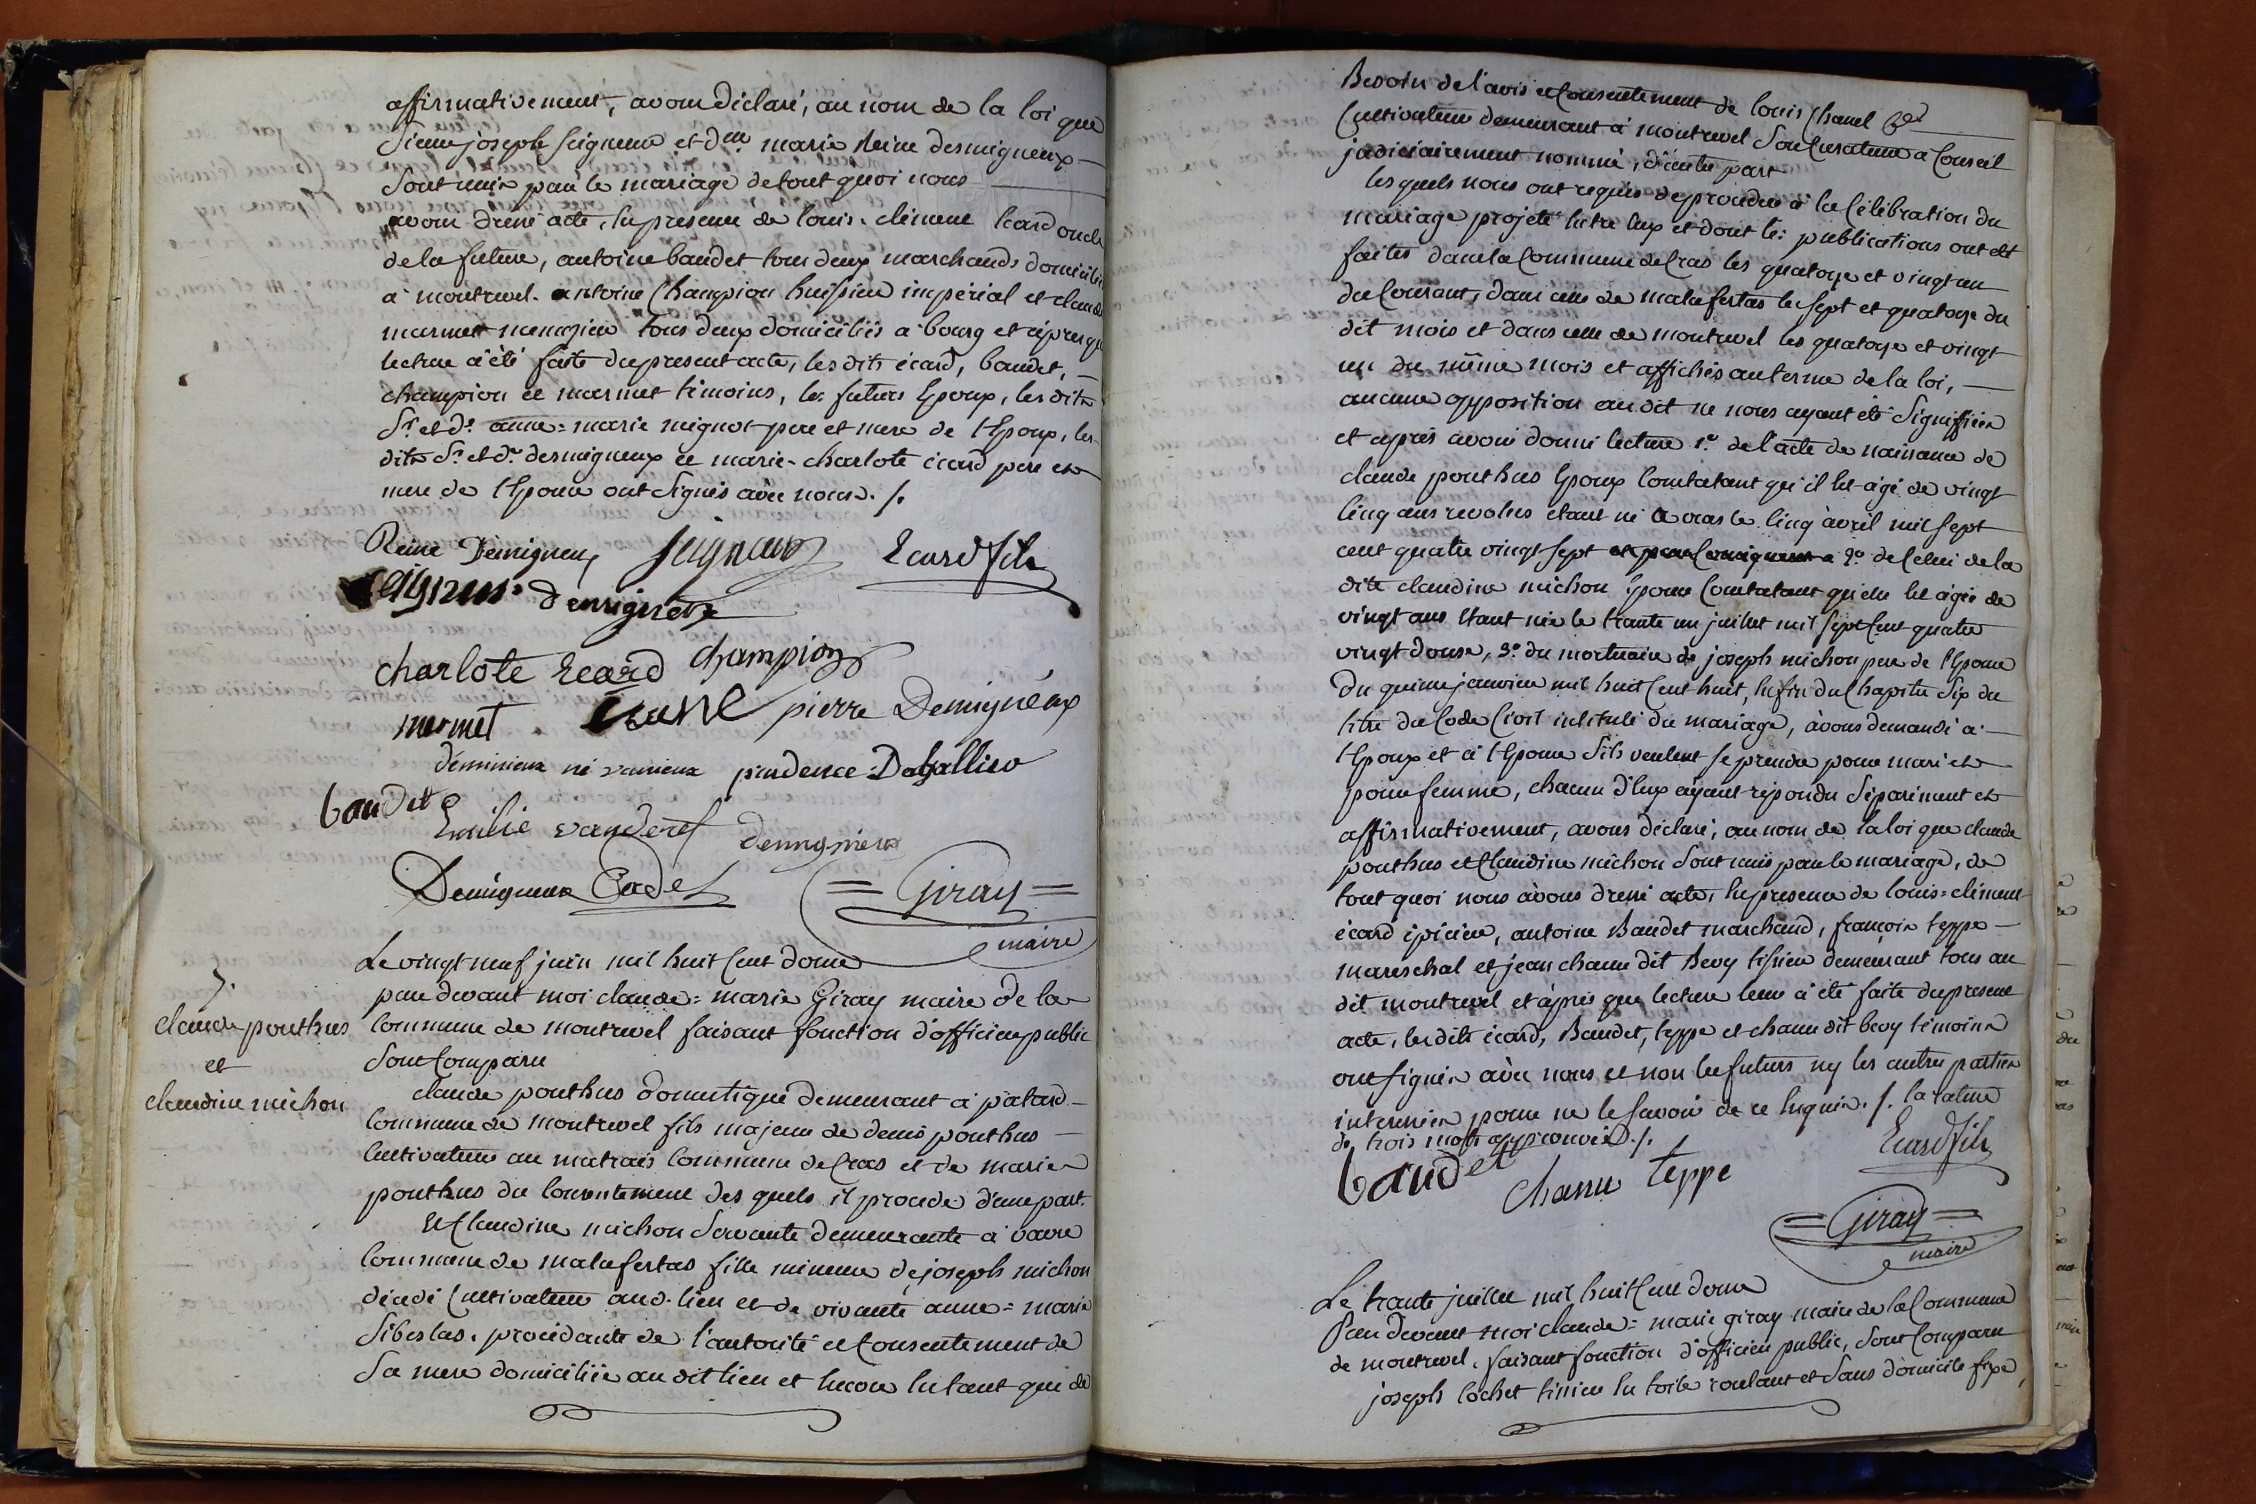 affirmativement, avons déclaré, au nom de la loi que
Sieur joseph seigneur et dlle marie Reine desmigneux
Sont unis par le mariage de tout quoi nous
avons dréssé acte, En presence de louis-clément Ecard oncle
de la future, antoine baudet tous deux marchands domiciliés
à montrevel. antoine Champion huissier impérial et claude
marmet menuzier tous deux domiciliés a bourg et après que
lecture a été faite du present acte, les dits écard, baudet,
champion et marmet témoins, les futurs Epoux, les dits
Sr. et de. anne=marie mignot pere et mere de l'Epoux, les
dits Sr. et de. desmigneux et marie-charlote écard pere et
mere de l'Epouse ont signés avec nous. /.
Reine Demigneux Seigneur Ecard fils
Seigneur demigneux
charlote Ecard Champion
mermet pierre Demigneux
prudence Dagallier
baudet
Emilie vanderef demigneux
Demigneux Cadet = Giray =
maire
Le vingt neuf juin mil huit Cent douze
par devant moi claude=marie Giray maire de la
commune de montrevel faisant fonction d'officier public
sont Comparu
7.
claude pouthus
et
claudine michon
claude pouthus domestique demeurant à patard
commune de montrevel fils majeur de denis pouthus
Cultivateur au matrais commune de Cras et de marie
pouthus du consentement des quels il procede d'une part.
Et Claudine michon Servante demeurante à vavre
commune de malafertas fille mineure de joseph michon
décédé Cultivateur aud. lieu et de vivante anne=marie
Sibeslas, procédante de l'autorité et Consentement de
Sa mere domiciliée au dit lieu et Encore En tant que de
Besoin de l'avis et Consentement de louis Chanel
Cultivateur demeurant à montrevel Son Curateur a Conseil
judiciairement nommé, d'autre part
les quels nous ont requis de proceder à la Célébration du
mariage projeté Entre Eux et dont les publications ont été
faites dans la Commune de Cras les quatorze et vingt un
du Courant, dans celle de malafertas les sept et quatorze du
dit mois et dans celle de montrevel les quatorze et vingt
un du même mois et affichés au terme de la loi,
aucune opposition au dit ne nous ayant été Signiffiée
et après avoir donné lecture 1.° de l'acte de naissance de
claude pouthus Epoux Constatant qu'il Est âgé de vingt
Cinq ans revolus étant né a cras le cinq avril mil sept
cent quatre vingt sept et par Consequent a 2.° de Celui de la
dite claudine michon Epouse Constatant qu'elle Est âgée de
vingt ans Etant née le trente un juillet mil sept Cent quatre
vingt douse, 3.° du mortuaire de joseph michon pere de l'Epouse
Du quinze janvier mil huit Cent huit, Enfin du Chapitre Six du
titre du Code Civil intitulé du mariage, avons demandé à
l'Epoux et à l'Epouse S'ils veulent se prendre pour mari et
pour femme, chacun d'Eux ayant répondu Séparément et
affirmativement, avons déclaré, au nom de la loi que claude
pouthus et Claudine michon Sont unis par le mariage, de
tout quoi nous avons dressé acte, En presence de louis=clément
écard épicier, antoine Baudet marchand, françois teppe
mareschal et jean chanu dit Bevy tissier demeurant tous au
dit montrevel et après que lecture leur a été faite du present
acte, les dits écard, Baudet, teppe et chanu dit bevy témoins
ont signés avec nous et non les futurs ny les autres parties
intervenu pour ne le savoir de ce Enquis. /. la rature
de trois mots approuvée. /.
baudet chanu teppe Ecard fils
= Giray =
maire
Le trente juillet mil huit Cent douze
Par Devant moi claude=marie giray maire de la Commune
de montrevel, faisant fonction d'officier public, Sont Comparu
joseph lochet tissier En toile roulant et Sans domicile fixe,